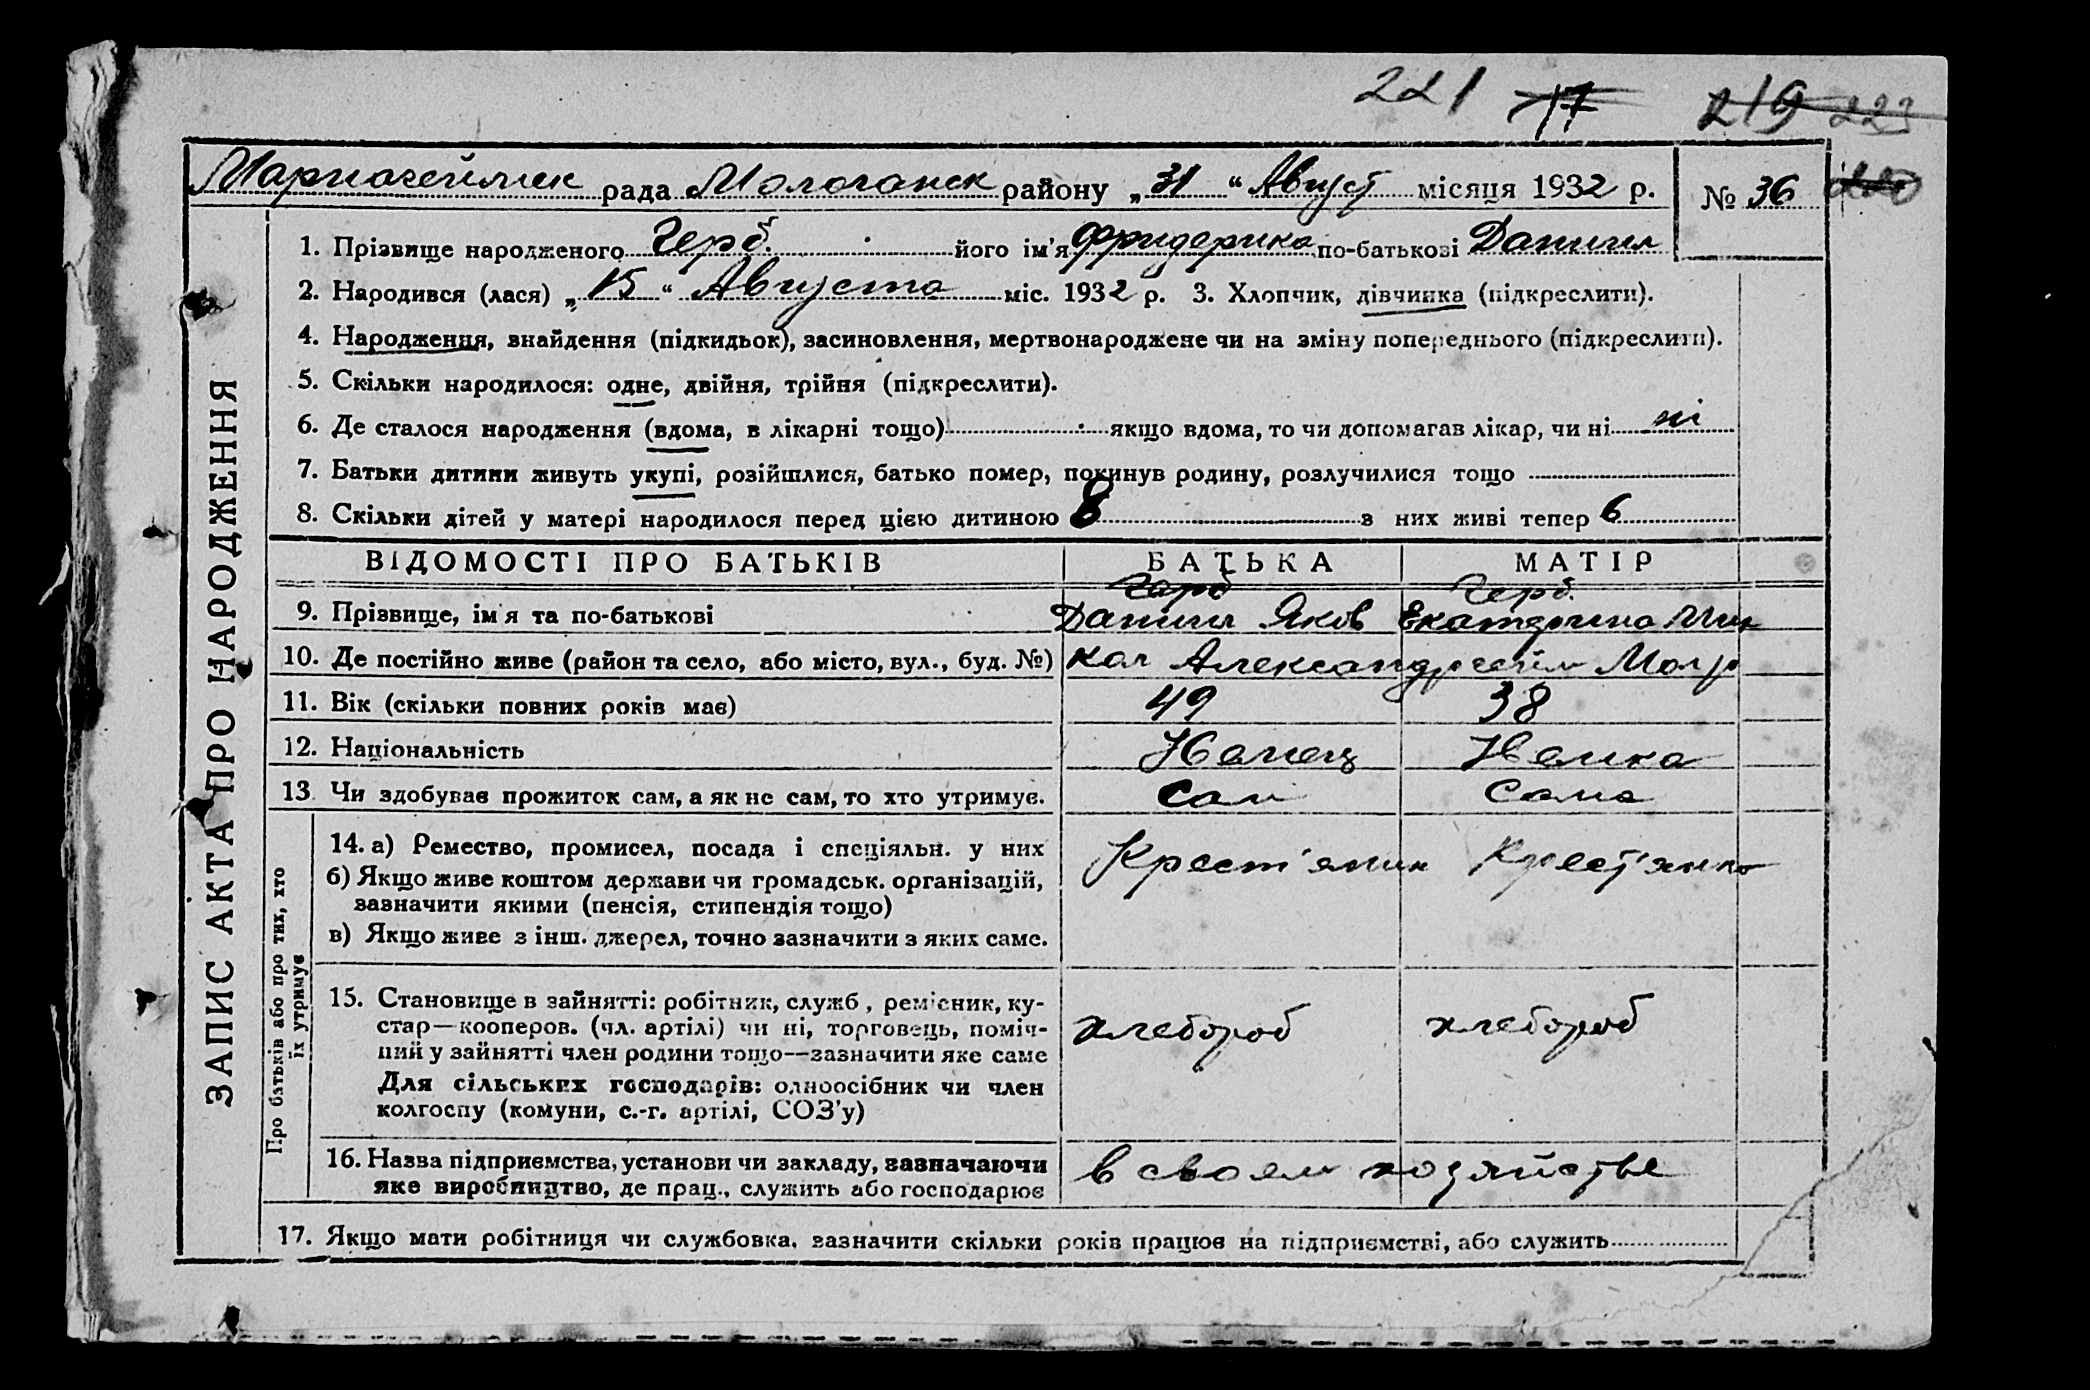 221 17 219 223
Мариогеймск рада Мологанск району „ 31 “ Август місяця 1932 р. № 36
1. Прізвище народженого Герб його ім'я Фридерика по-батькові Даниил
2. Народився (лася) „ 15 “ Августа міс. 1932 р. 3. Хлопчик, дівчинка (підкреслити).
4. Народження, знайдення (підкидьок), засиновлення, мертвонароджене чи на зміну попереднього (підкреслити).
5. Скільки народилося: одне, двійня, трійня (підкреслити).
6. Де сталося народження (вдома, в лікарні тощо) якщо вдома, то чи допомагав лікар, чи ні ні
7. Батьки дитини живуть укупі, розійшлися, батько помер, покинув родину, розлучилися тощо
8. Скільки дітей у матері народилося перед цією дитиною 8 з них живі тепер 6
ЗАПИС АКТА ПРО НАРОДЖЕННЯ
ВІДОМОСТІ ПРО БАТЬКІВ БАТЬКА МАТІР
Герб Герб.
9. Прізвище, ім'я та по-батькові Даниил Яков Екатерина
10. Де постійно живе (район та село, або місто, вул., буд. №) кол Александргейм Мол р
11. Вік (скільки повних років має) 49 38
12. Національність Немец Немка
13. Чи здобуває прожиток сам, а як не сам, то хто утримує. Сам Сама
Про батьків або про тих, хто
їх утримує
14. а) Ремество, промисел, посада і спеціяльн. у них Крест'янин Крест'янка
б) Якщо живе коштом держави чи громадськ. організацій,
зазначити якими (пенсія, стипендія тощо)
в) Якщо живе з інш. джерел, точно зазначити з яких саме.
15. Становище в зайнятті: робітник, служб., ремісник, ку-
стар—кооперов. (чл. артілі) чи ні, торговець, поміч- хлебороб хлебороб
ний у зайнятті член родини тощо—зазначити яке саме
Для сільських господарів: одноосібник чи член
колгоспу (комуни, с.-г. артілі, СОЗ'у)
16. Назва підприємства, установи чи закладу, зазначаючи в своем хозяйстве
яке виробництво, де прац., служить або господарює
17. Якщо мати робітниця чи службовка, зазначити скільки років працює на підприємстві, або служить